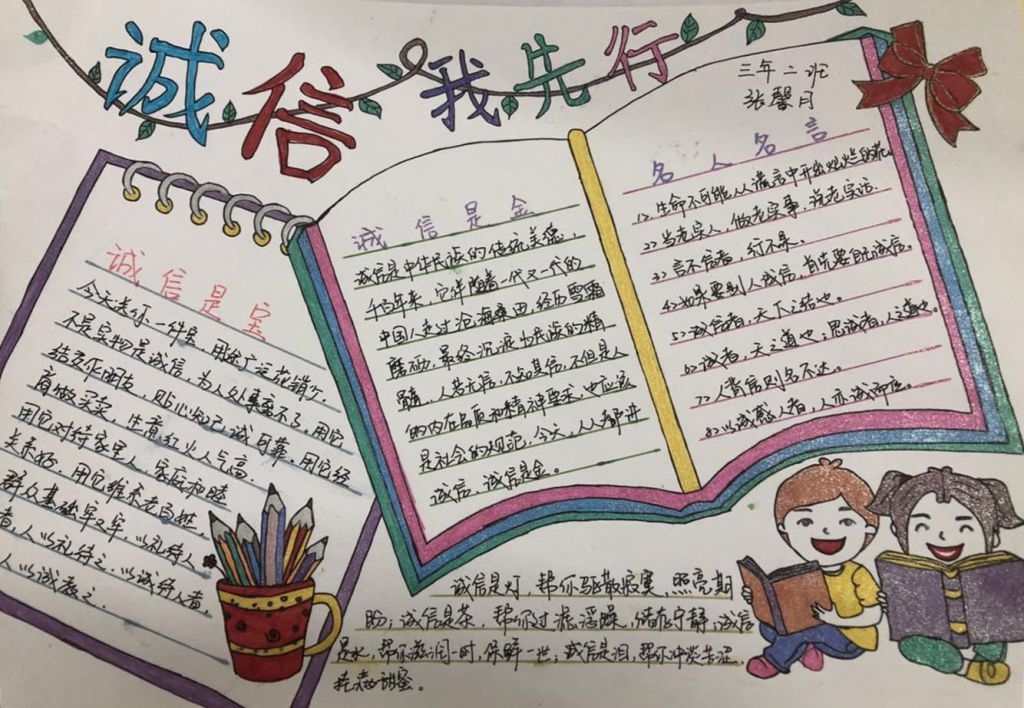 诚信我先行
三年二班
张馨月
诚信是宝
今天送你一件宝，用途广泛花销少。
不是实物是诚信，为人处事离不了，用它
结交作朋友，贴心知己诚可靠，用它经
商做买卖，生意红火人气高。
用它对待家里人，家庭和睦
关系好，用它
群众基础牢又牢，以礼待人
者，人以礼待之，以诚待人者，
人以诚
诚信是金
诚信是中华民族的传统美德，
千百年来，它伴随着一代又一代的
中国人走过沧海桑田，经历雪霜
磨砺，最终沉淀为民族的精
髓，人若无信，不知其信，不但是人
的内在品质和精神要求，也应该
是社会的规范，今天，人人都讲
诚信，诚信是金。
名人名言
1、生命不可能从谎言中开出灿烂的花。
2、当老实人，做老实事，说老实话。
3、言不信者，行不果。
4、如果要别人诚信，首先要自己诚信。
5、诚信者，天下之结也。
6、诚者，天之道也；思诚者，人之道也。
7、人背信则名不达。
8、以诚感人者，人亦诚而应。
诚信是灯，帮你驱散寂寞，照亮期
盼；诚信是茶，帮你过滤浮躁，储存宁静；诚信
是水，帮你滋润一时，保鲜一世；诚信是泪，帮你冲淡苦涩，
甜蜜。